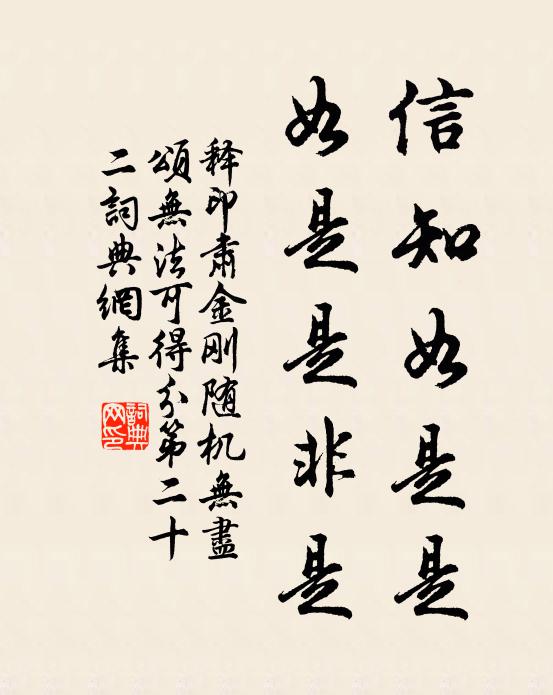 信知如是是
如是是非是
释印肃金刚随机無盡
頌無法可得分第二十
二詞典網集
詞典网印